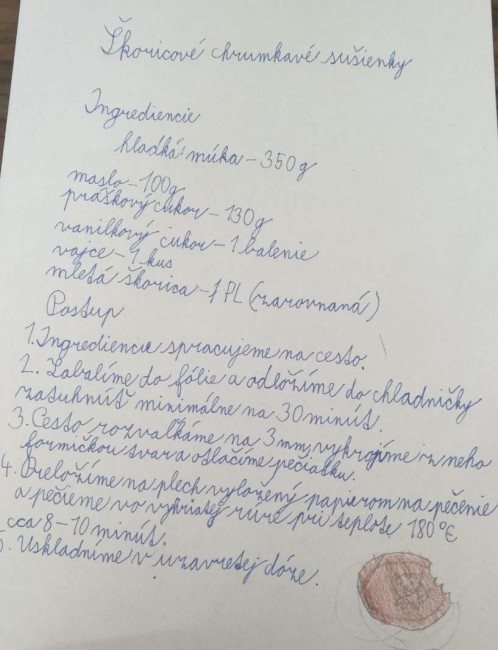 Škoricové chrumkavé sušienky
Ingrediencie
hladká múka – 350g
maslo – 100g
práškový cukor – 130g
vanilkový cukor – 1 balenie
vajce – 1 kus
mletá škorica – 1 PL (zarovnaná)
Postup
1. Ingrediencie spracujeme na cesto.
2. Zabalíme do fólie a odložíme do chladničky
zatuhnúť minimálne na 30 minút.
3. Cesto rozvaľkáme na 3 mm, vykrojíme z neho
formičkou tvar a otlačíme pečiatku.
4. Preložíme na plech vyložený papierom na pečenie
a pečieme vo vyhriatej rúre pri teplote 180°C
cca 8-10 minút.
5. Uskladníme v uzavretej dóze.